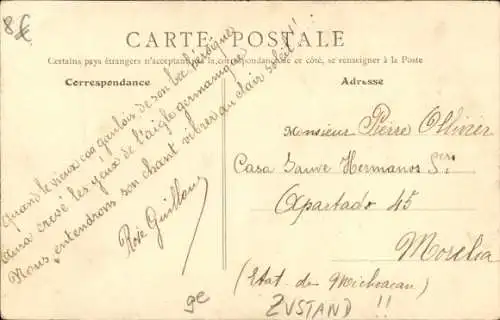 8€
CARTE POSTALE
Certains pays étrangers n'acceptant pas la correspondance de ce côté, se renseigner à la Poste
Correspondance
Adresse
Quand le vieux coq gaulois de son bec héroïque
Aura crevé les yeux de l'aigle germanique
Nous entendrons son chant vibrer au clair soleil!!
Rose Guillon
Monsieur Pierre Ollivier
Casa Jauve Hermanos Sres
Apartado 45
Morelia
(Etat de Michoacan)
ZUSTAND !!